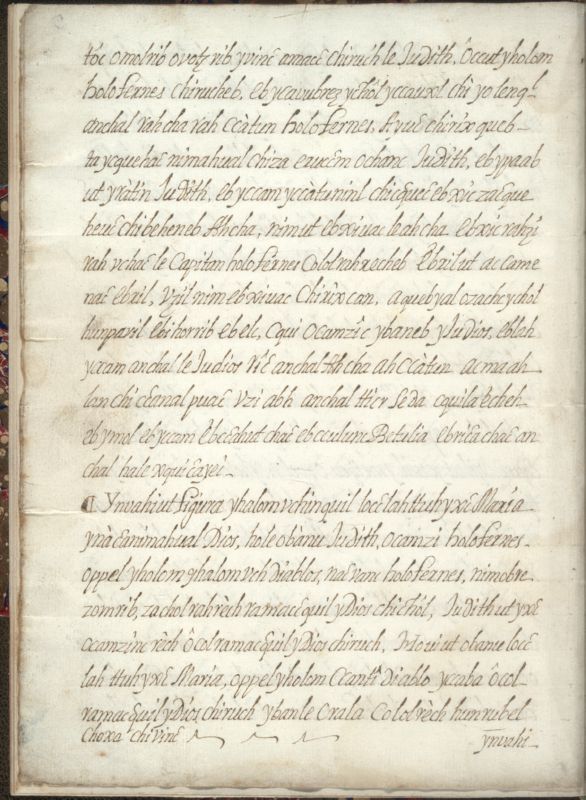 tóc omolrib ovotz rib, yvinc amacc chiruch le Judith, Occut yholom
holofernes chirucheb, eb yccavubrez ychól yccauxl chi yo lenql
anchal rah cha rah ccàtun holofernes, Ayuc chirix queb-
ta ycquehac nimahual chiza euxem ochanc Judith, eb ypaab
ut yràtin Judith, eb yccam yccàtuninl chic quic eb xic zaèque
heuc chi beheneb Ahcha, nim ut eb xiuac le ah cha eb xic rahzi
rah vchac le Capitan holofernes Colol rah recheb Ebzil ut ac came
nac ebzil, Vzil nim eb xiuac Chirix can, aqueb yal ozach cychól
hunpavil ebi horrib eb elc, Cqui Ocamzic ybàneb y Judios, eblah
yxam anchal le Judios Ric anchal cha ah Ccàtun acma ah
lon chi ceanal puac Vzi abh anchal tticr Seda cquila beheh
eb ymol eb yccam Ebccahut chac eb cculum Betulia ebrica chac an
chal hale xqui cayei-
Ynvahi ut figura yhalom vchinquil locc lah ttuhyxc Maria
ynà canimahual Dios, hole obànu Judith, ocamzi holofernes.
oppel yholom yhalom vch Diablos, nac varu holofernes, nimobre
zom rib, zachol rah rèch ramac quil y Dios chichól, Judith ut yxc
ocamzinc rèch ôcol ramac quil y Dios chiruch, Mo vi ut obanu locc
lah ttuh yxc Maria, oppel yholom Diablo yccaba ôcol-
ramac quil y Dios chiruch ybanle Crala Colol rèch hunrubel
Choxa chi vinc
ynvahi-